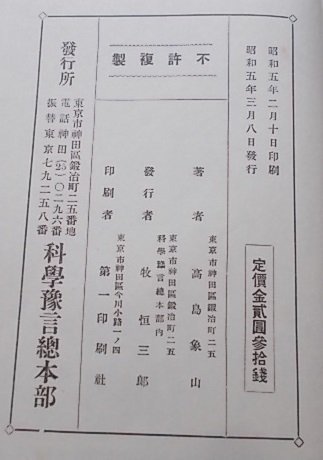 昭和五年二月十日印刷
昭和五年三月八日發行
定價金貳圓參拾錢
不許複製
東京市神田區鍛冶町二五
著者 高島象山
東京市神田區鍛冶町二五
科學豫言總本部內
發行者 牧恒三郎
東京市神田區今川小路一ノ四
印刷者 第一印刷社
發行所
東京市神田區鍛冶町二五番地
電話神田(25)〇二九六番
振替東京七九二五八番
科學豫言總本部